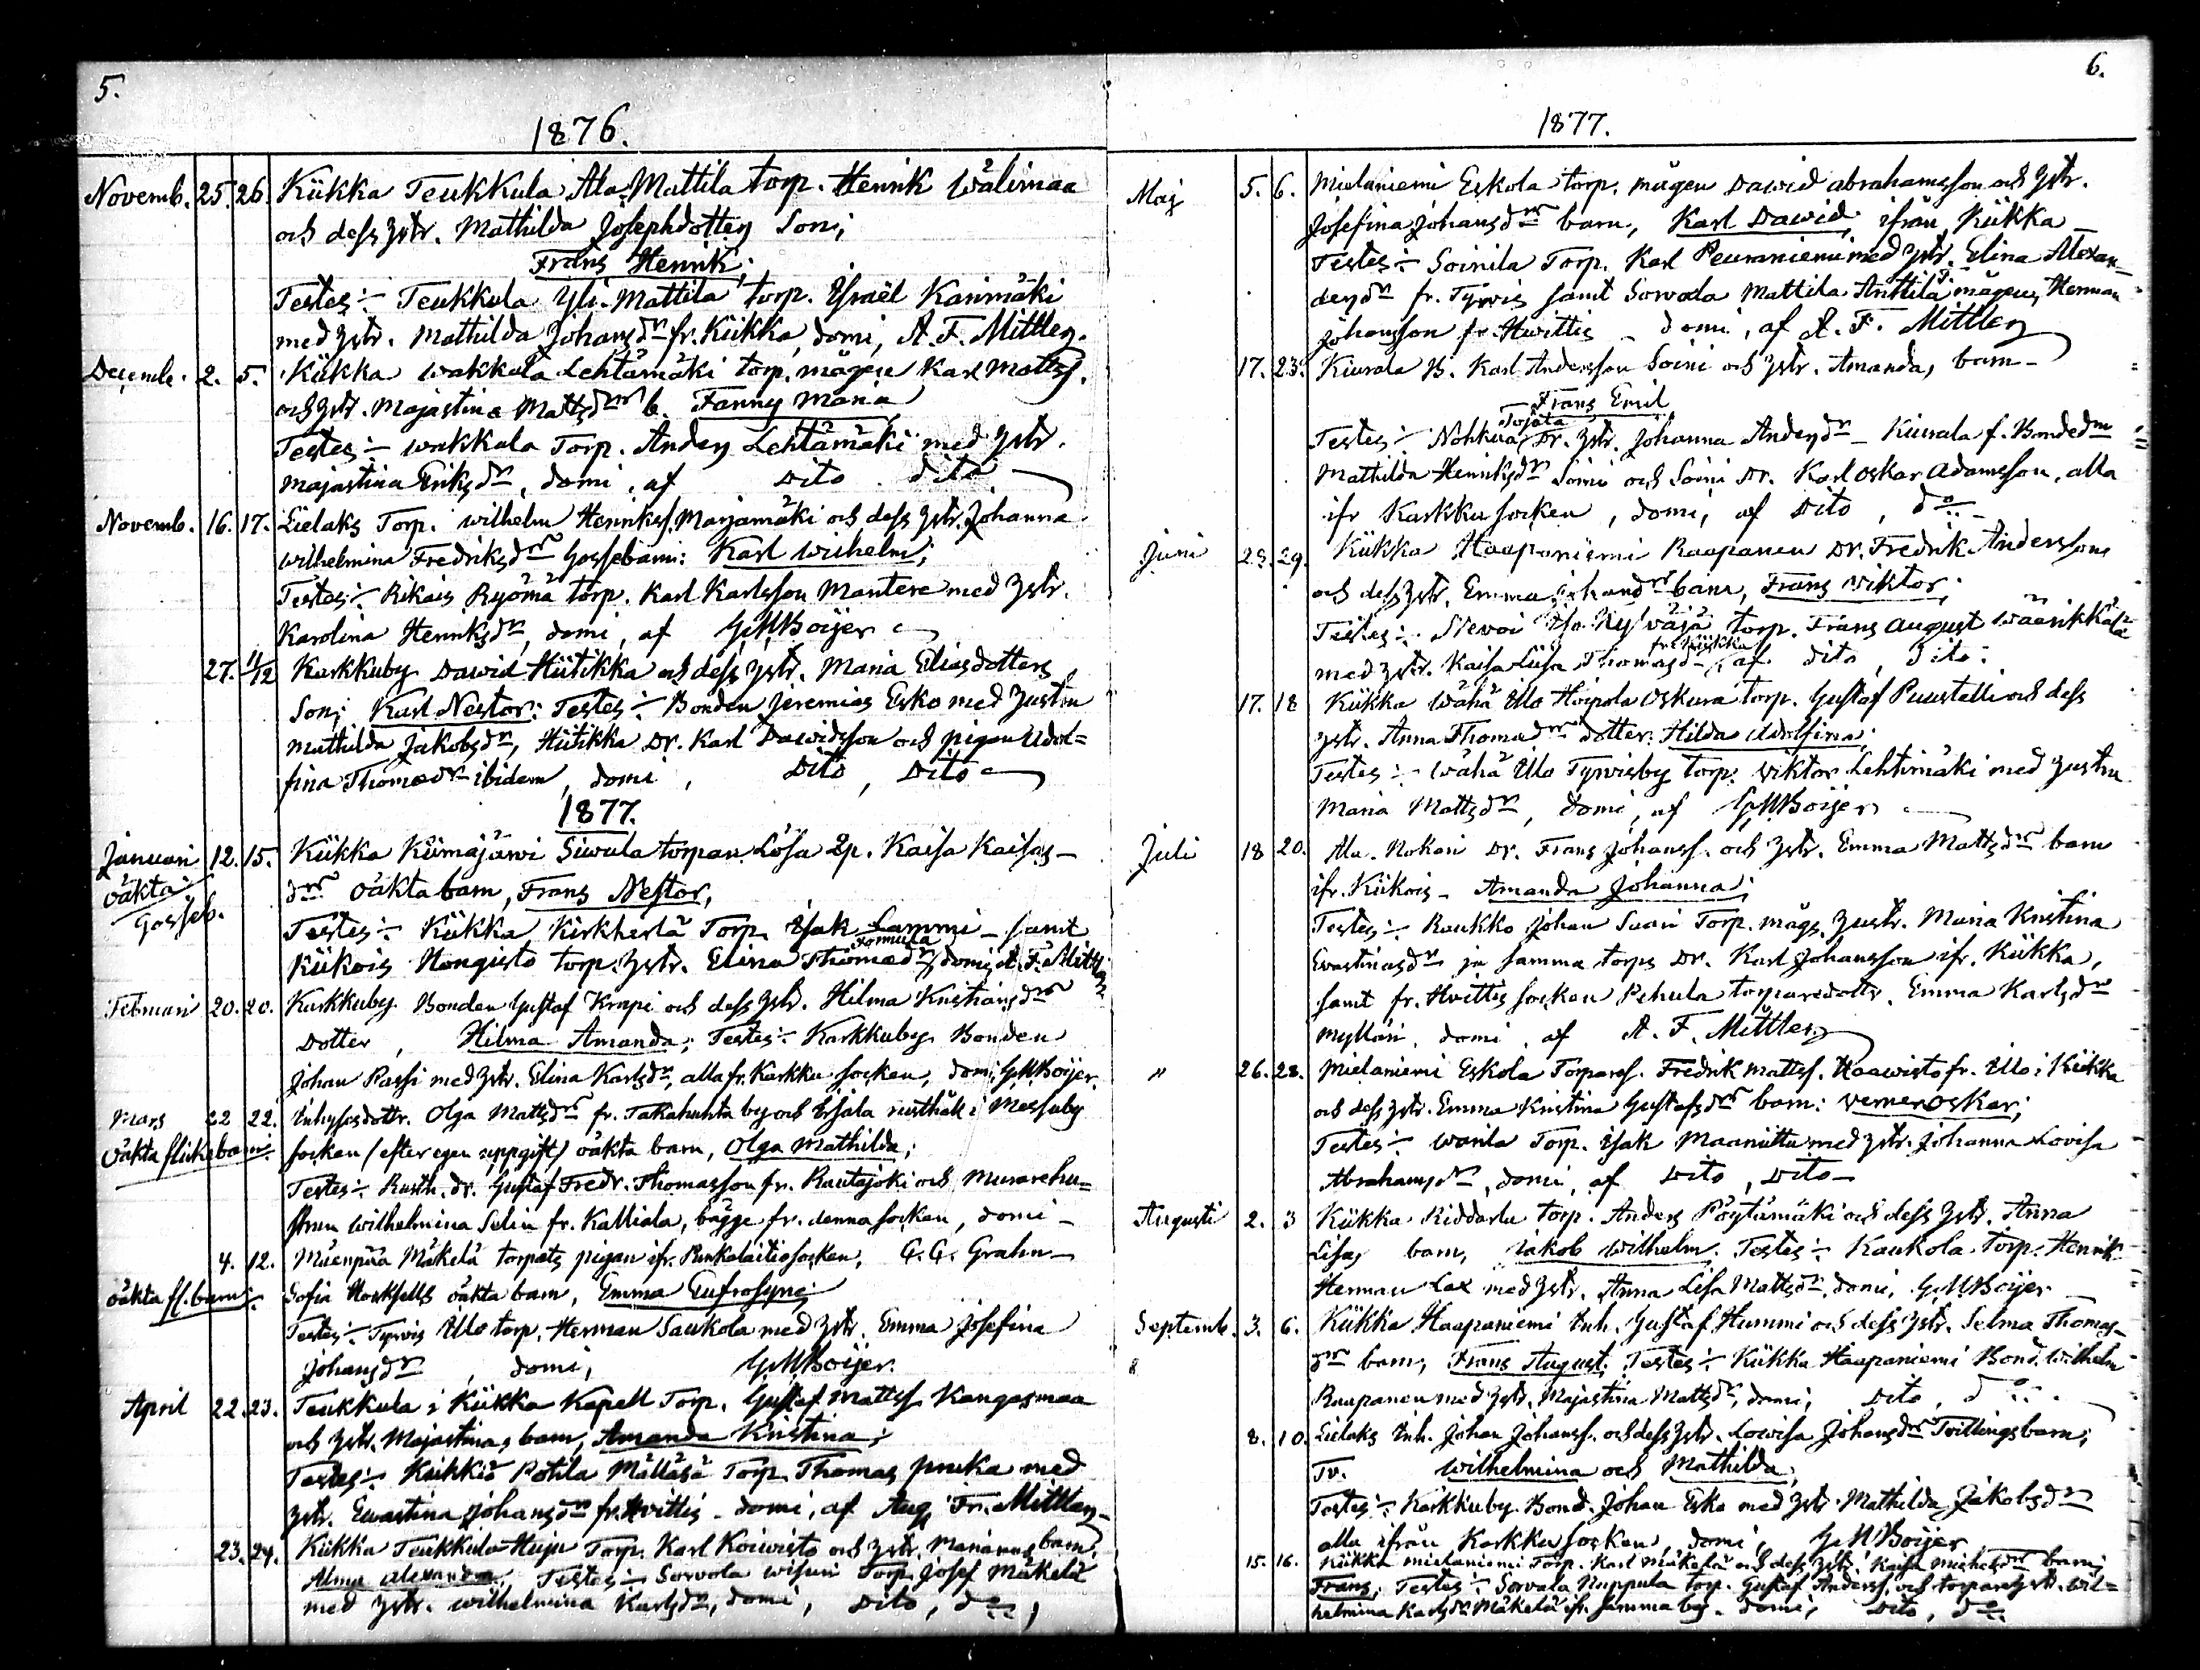 5.
1876.
Novemb. 25. 26. Kiikka Teukkula Ala-Mattila torp. Henrik Wälimaa
och dess hstr. Mathilda Josephdotters Son;
Frans Henrik;
Testes:- Teukkula Yli-Mattila torp. Israël Karimäki
med hstr. Mathilda Johansdr fr. Kiikka, domi, A. F. Mittler.
Decemb. 2. 5. Kiikka Wakkula Lehtämäki torp. mågen Karl Mattss.
och hstr. Majastina Mattsdrs b. Fanny Maria
Testes:- Wakkala Torp. Anders Lehtämäki med hstr.
Majastina Eriksdr, domi, af Dito dito
Novemb. 16. 17. Lielaks Torp. Wilhelm Henrikss. Marjamäki och dess hstr. Johanna
Wilhelmina Fredriksdrs Gossebarn: Karl Wilhelm;
Testes:- Rikais Ryömä torp. Karl Karlsson Mantere med hstr.
Karolina Henriksdr, domi, af G. M. Boijer
27. 1/12 Karkkuby Dawid Hiitikka och dess hstr. Maria Eliasdotters
Son; Karl Nestor; Testes:- Bonden Jeremias Esko med hustru
Mathilda Jakobsdr, Hiitikka Dr. Karl Dawidsson och pigan Adol=
fina Thomædr ibidem, domi, Dito, Dito
1877.
Januari 12. 15. Kiikka Kiimajärwi Siwula torpan Lösa Qp. Kaisa Kaisas-
oäkta drs oäkta barn, Frans Nestor,
Gosseb. Testes:- Kiikka Kirkherlä Torp. Isak Lammi - samt
Kiikois Hongisto torp. hstr. Elina Thomædr domi, A. F. Mittler
Februari 20. 20. Karkkuby Bonden Gustaf Krapi och dess hstr. Hilma Kristiansdrs
Dotter, Hilma Amanda; Testes:- Karkkuby Bonden
Johan Passi med hstr. Elina Karlsdr, alla fr. Karkku socken, domi, G. M. Boijer.
Mars 22 22. Inhysesdottr. Olga Mattsdrs fr. Takahuhta by och Erjala rusthåll i Messuby
oäkta flickebarn: socken (efter egen uppgift) oäkta barn, Olga Mathilda;
Testes:- Rusth. dr. Gustaf Fredr. Thomasson fr. Rautajoki och Murarehu=
strun Wilhelmina Selin fr. Kalliala, bägge fr. denna socken, domi -
4. 12. Mäenpää Mäkelä torpets pigan ifr. Punkalaitio socken, G. G. Grahn
oäkta fl. barn: Sofia Horksells oäkta barn, Emma Eufrosyne;
Testes:- Tyrvis Illo torp. Herman Saukola med hstr. Emma Josefina
Johansdr, domi, G. M. Boijer.
April 22. 23. Teukkula i Kiikka Kapell Torp. Gustaf Mattss. Kangasmaa
och hstr. Majastinas barn, Amanda Kristina;
Testes:- Keikkiö Potila Mälläsä Torp. Thomas Pruka med
hstr. Ewastina Johansdr fr. Hvittis - domi, af Aug. Fr. Mittler
23. 24. Kiikka Teukkula Huju Torp. Karl Koiwisto och hstr. Mariannas barn,
Alma Alexandra; Testes:- Sorvola Wisuri Torp. Josef Mäkelä
med hstr. Wilhelmina Karlsdr, domi, Dito, do
6.
1877.
Maj 5. 6. Mielaniemi Eskola torp. mågen Dawid Abrahamsson och hstr.
Josefina Johansdrs barn, Karl Dawid, ifrån Kiikka
Testes:- Soinila Torp. Karl Peuraniemi med hstr. Elina Alexan-
dersdr fr. Tyrvis samt Sorvola Mattila Anttila mågen Herman
Johansson fr. Hwittis - domi, af A. F. Mittler
17. 23. Kiurala B. Karl Andersson Soini och hstr. Amandas barn -
Frans Emil
Tojala
Testes:- Nohkua Dr. hstr. Johanna Andersdr - Kiurala f. Bondedr
Mathilda Henriksdr Soini och Soini Dr. Karl Oskar Adamsson, alla
ifr Karkku socken, domi, af Dito, do
Juni 23. 29. Kiikka Haapaniemi Raapanen Dr. Fredrik Anderssons
och dess hstr. Emma Johansdrs barn, Frans Wiktor;
Testes:- torp. Frans August Wäärikkälä
fr. Kiikka
med hstr. Kaisa Liisa Thomasdr, af dito, Dito:
17. 18 Kiikka Wähä Illo Hoipola Uskura torp. Gustaf Puustelli och dess
hstr. Anna Thomædrs dotter: Hilda Adolfina;
Testes:- Wähä Illo Tyrvisby torp. Wiktor Lehtimäki med hustru
Maria Mattsdr, domi, af G. M. Boijer
Juli 18 20. Ala-Nokari Dr. Frans Johanss. och hstr. Emma Mattsdrs barn
ifr. Kiikois - Amanda Johanna;
Testes:- Raukko Johan Saari Torp. mågs hustr. Maria Kristina
Evastinasdr ju samma torps Dr. Karl Johansson ifr. Kiikka,
samt fr. Hvittis socken Pehula torparedottr. Emma Karlsdr
Mylläri, domi, af A. F. Mittler
" 26. 28. Mielaniemi Eskola Torpares. Fredrik Mattss. Haawisto fr. Illo i Kiikka
och dess hstr. Emma Kristina Gustafsdrs barn: Verner Oskar;
Testes:- Warila Torp. Isak Maaniittu med hstr. Johanna Lovisa
Abrahamsdr, domi, af Dito, Dito -
Augusti 2. 3 Kiikka Riddarla torp. Anders Pöytämäki och dess hstr. Anna
Lisas barn, Jakob Wilhelm. Testes:- Kaukola torp. Henrik
Herman Lax med hstr. Anna Lisa Mattsdr, domi, G. M. Boijer
Septemb. 3. 6. Kiikka Haapaniemi Inh. Gustaf Hummi och dess hstr. Selma Thomas-
drs barn, Frans August; Testes:- Kiikka Haapaniemi Bond. Wilhelm
Raapanen med hstr. Majastina Mattsdr, domi, Dito, do
8. 10. Lielaks Inh. Johan Johanss. och dess hstr. Lowisa Johansdrs Tvillingsbarn;
Tv. Wilhelmina och Mathilda;
Testes:- Karkkuby Bond. Johan Esko med hstr Mathilda Jakobsdr
alla ifrån Karkku socken, domi, G. M. Boijer
15. 16. Kiikka Mielaniemi Torp. Karl Mäkelä och dess hstr. Kaisa Michelsdrs barn,
Frans; Testes:- Sorvala Nuppula torp. Gustaf Anderss. och torpare hstr. Wil=
helmina Karlsdr Mäkelä ifr. samma by. domi, Dito, do